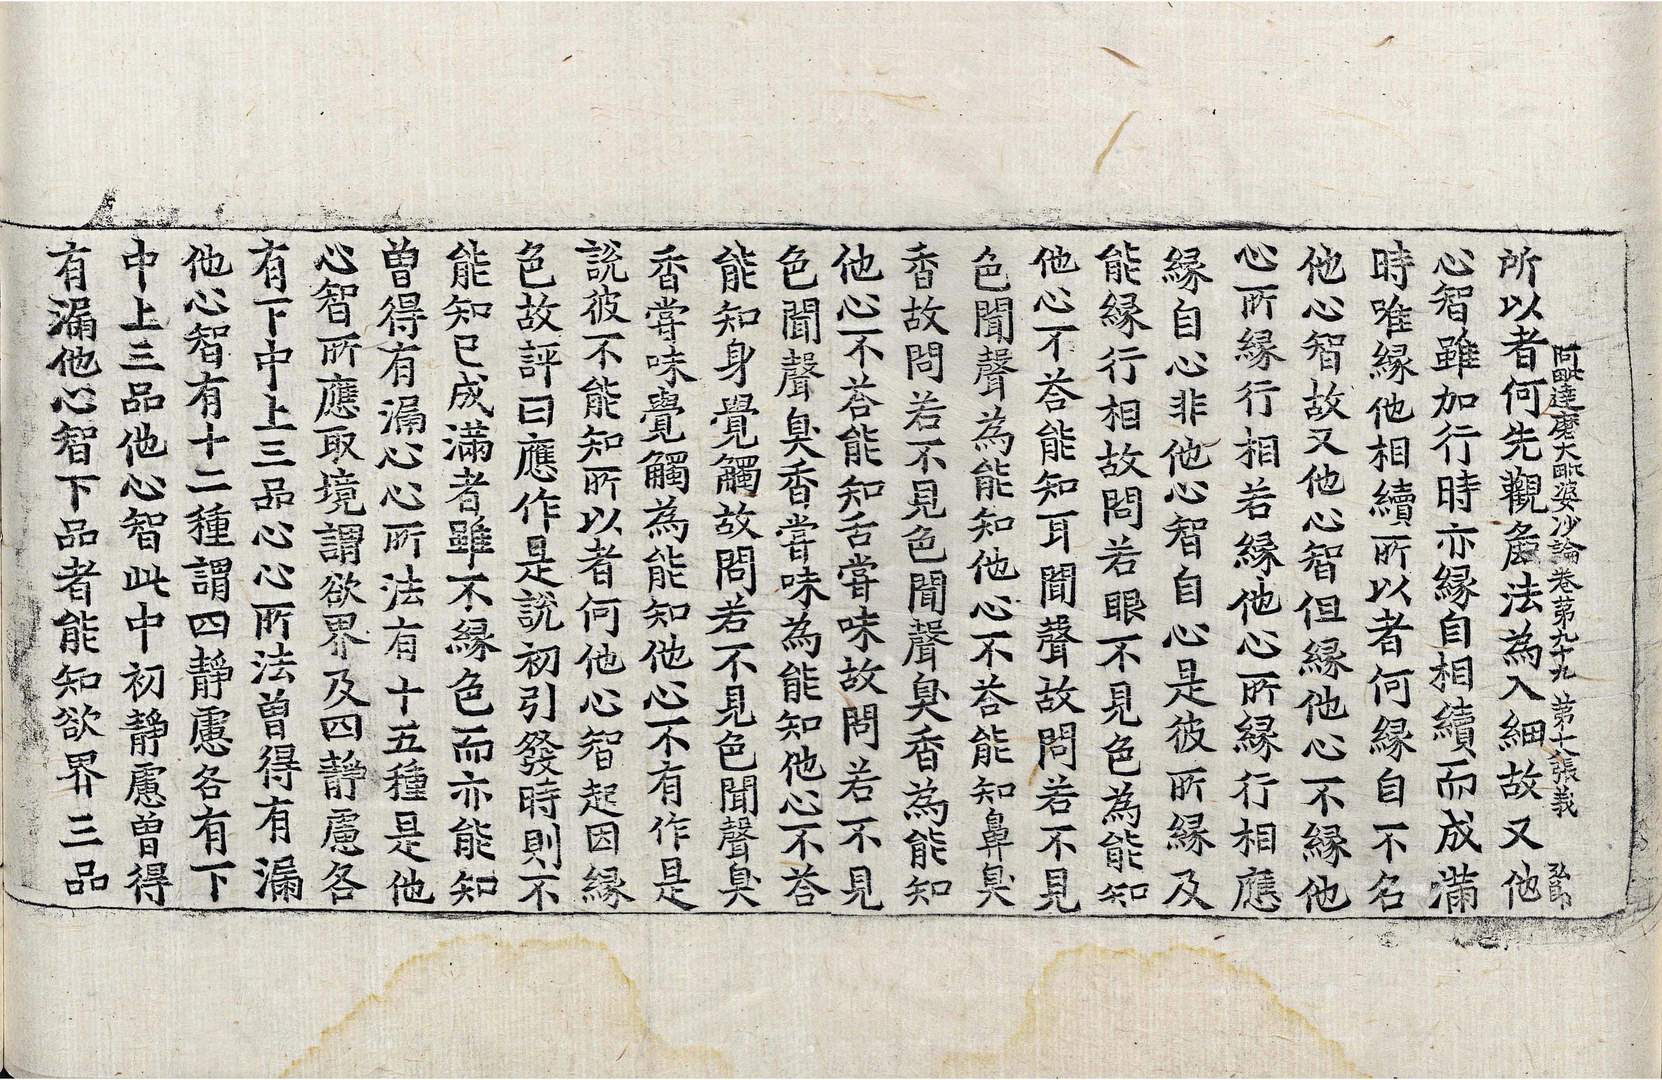 阿毗達磨大毗婆沙論卷第九十九 第十八張 義
所以者何先觀麁法為入細故又他
心智雖加行時亦縁自相續而成滿
時唯縁他相續所以者何縁自不名
他心智故又他心智但縁他心不縁他
心所縁行相若縁他心所縁行相應
縁自心非他心智自心是彼所縁及
能縁行相故問若眼不見色為能知
他心不荅能知耳聞聲故問若不見
色聞聲為能知他心不荅能知鼻臭
香故問若不見色聞聲臭香為能知
他心不荅能知舌甞味故問若不見
色聞聲臭香甞味為能知他心不荅
能知身覺觸故問若不見色聞聲臭
香甞味覺觸為能知他心不有作是
說彼不能知所以者何他心智起因縁
色故評曰應作是說初引發時則不
能知已成滿者雖不縁色而亦能知
曾得有漏心心所法有十五種是他
心智所應取境謂欲界及四靜慮各
有下中上三品心心所法曾得有漏
他心智有十二種謂四靜慮各有下
中上三品他心智此中初靜慮曾得
有漏他心智下品者能知欲界三品